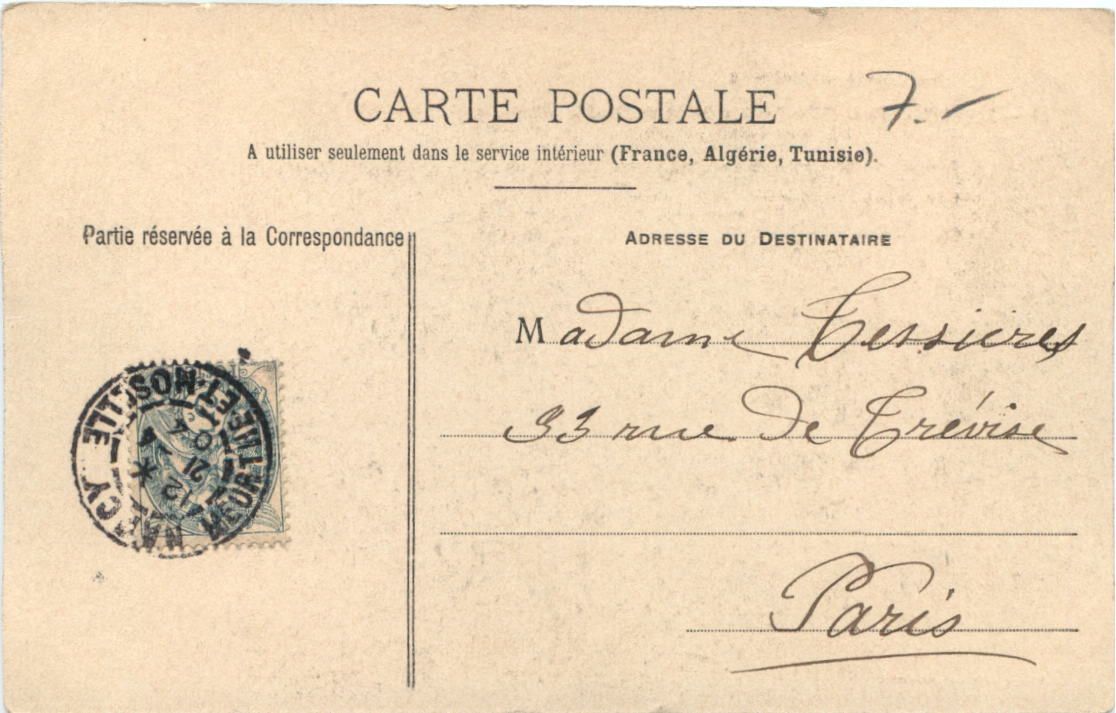 CARTE POSTALE 7.-
A utiliser seulement dans le service intérieur (France, Algérie, Tunisie).
Partie réservée à la Correspondance
ADRESSE DU DESTINATAIRE
Madame Tessieres
33 rue de Trévise
Paris
NANCY
MEURTHE-ET-MOSELLE
21